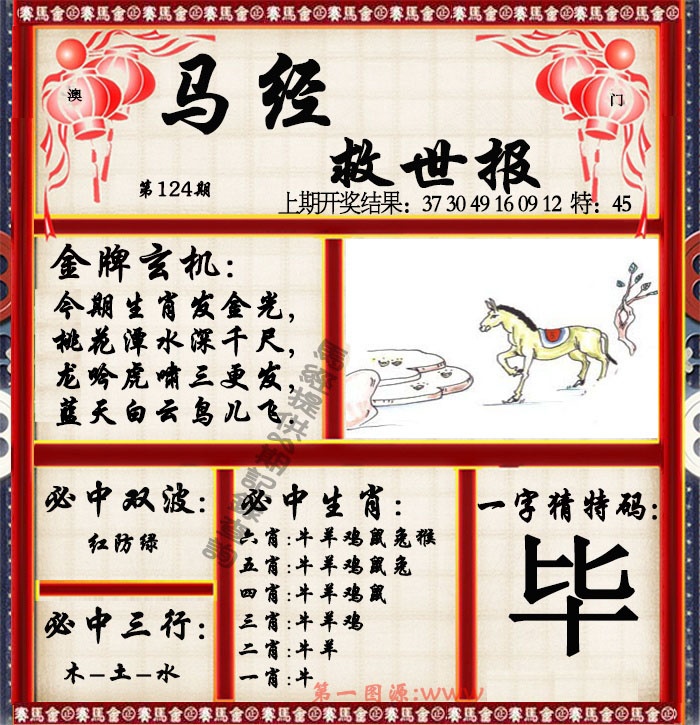 賽馬會正賽馬會正賽馬會正賽馬會正賽馬會正賽馬會
澳
门
马经
救世报
第124期
上期开奖结果：37 30 49 16 09 12 特：45
金牌玄机：
今期生肖发金光，
桃花潭水深千尺，
龙吟虎啸三更发，
蓝天白云鸟儿飞．
必中双波：
红防绿
必中三行：
木–土–水
必中生肖：
六肖：牛羊鸡鼠兔猴
五肖：牛羊鸡鼠兔
四肖：牛羊鸡鼠
三肖：牛羊鸡
二肖：牛羊
一肖：牛
一字猜特码：
毕
第一图源:www